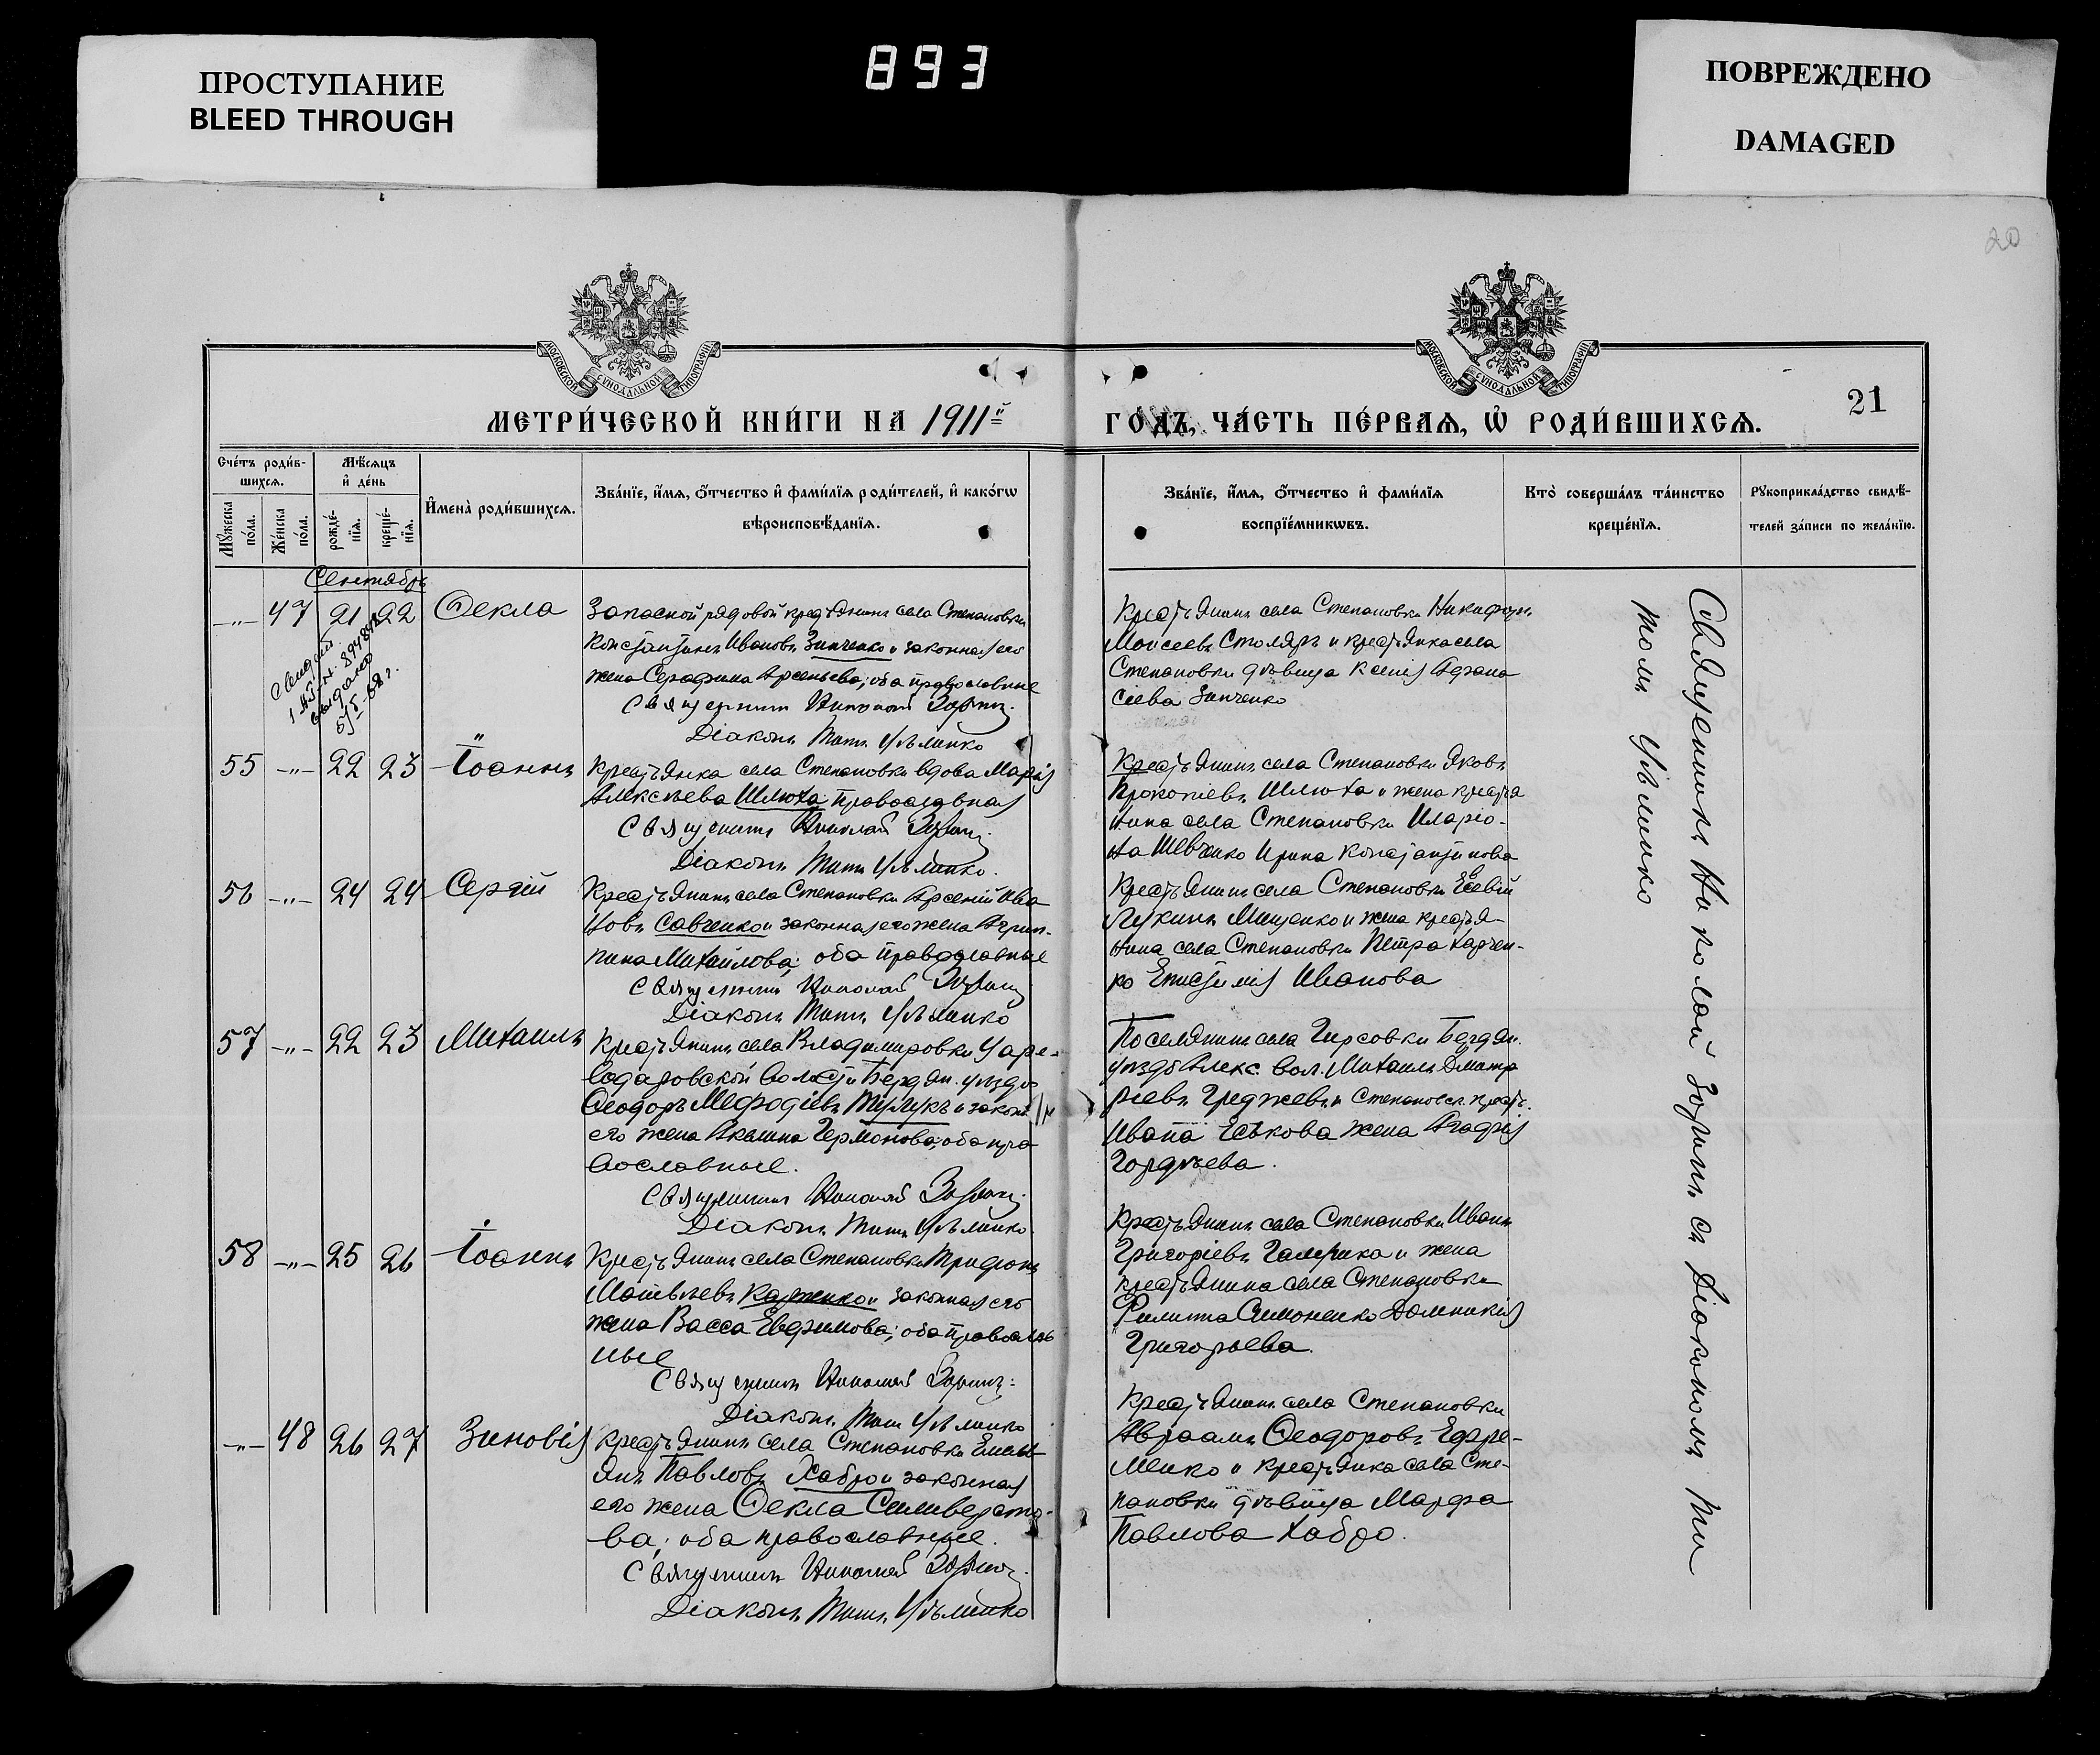 ПРОСТУПАНИЕ
BLEED THROUGH
893
ПОВРЕЖДЕНО
DAMAGED
20
МОСКОВСКОЙ СѴНОДАЛЬНОЙ ТИПОГРАФІИ
МОСКОВСКОЙ СѴНОДАЛЬНОЙ ТИПОГРАФІИ
МЕТРИ́ЧЕСКОЙ КНИ́ГИ НА 1911й
ГО́ДЪ, ЧА́СТЬ ПЕ́РВАѦ, Ѡ҆ РОДИ́ВШИХСѦ.
21
Сче́тъ роди́в-
шихсѧ.
Мꙋ́жеска по́ла.
Же́нска по́ла.
Мѣ́сѧцъ
и҆ де́нь
рожде́-
нїѧ.
креще́-
нїѧ.
И҆мена̀ роди́вшихсѧ.
Зва́нїе, и҆́мѧ, ѻ҆́тчество и҆ фами́лїѧ роди́телей, и҆ како́гѡ
вѣроисповѣ́данїѧ.
Зва́нїе, и҆́мѧ, ѻ҆́тчество и҆ фами́лїѧ
воспрїе́мникѡвъ.
Кто̀ соверша́лъ та́инство
креще́нїѧ.
Рꙋкоприкла́дство свидѣ́-
телей за́писи по жела́нїю.
Сентябрь
-"- 47 21 22 Ѳекла
выдано
5/I-68 г.
Запасной рядовой крестьянинъ села Степановки
Константинъ Ивановъ Зинченко и законная его
жена Серафима Арсеньева; оба православные
Священникъ Николай Зоринъ.
Діаконъ Тит. Ульянко
Крестьянинъ села Степановки Никифоръ
Моисеевъ Столяръ и крестьянка села
Степановки дѣвица Ксенія Афана
сіева Зинченко
55 -"- 22 23 Іоаннъ
Крестьянка села Степановки вдова Марія
Алексѣева Шлюха; православная
Священникъ Николай Зоринъ.
Діаконъ
Крестьянинъ села Степановки Яковъ
Прокопіевъ Шлюха и жена кресть
нина села Степановки Иларіо-
на Шевченко Ирина Константинова
56 -"- 24 24 Сергій
Крестьянинъ села Степановки Арсеній Ива
новъ Савченко и законная его жена Агрип-
пина Михайлова; оба православные
Священникъ Николай Зоринъ
Діаконъ
Крестьянинъ села Степановки Евсевій
Лукинъ Мищенко и жена крестья-
нина села Степановки Петра Харчен-
ко Епистимія Иванова
57 -"- 22 23 Михаилъ
Крестьянинъ села Владимировки Царе-
водаровской волости Бердян. уѣзда
Ѳеодоръ Меѳодіевъ и закон
его жена Акилина оба пра
вославные.
Священникъ Николай Зоринъ.
Діаконъ
Поселянинъ села Гирсовки Бердян.
уѣзда Алекс. вол. Михаилъ Дмит
ріевъ и Степановск. крест.
Ивана Еськова жена Агафія
Гордѣева.
58 -"- 25 26 Іоаннъ
Крестьянинъ села Степановки Трифонъ
Матвѣевъ и законная его
жена Васса Евфимова; оба православ
ные
Священникъ Николай Зоринъ.
Діаконъ
Крестьянинъ села Степановки Иванъ
Григоріевъ и жена
крестьянина села Степановки
Филиппа Симоненко Домникія
Григорьева.
-"- 48 26 27 Зиновія
Крестьянинъ села Степановки Емель
янъ Павловъ Хабро и законная
его жена Ѳекла Сильверсто-
ва; оба православные.
Священникъ Николай Зоринъ.
Діаконъ
Крестьянинъ села Степановки
Авраамъ Ѳеодоровъ Ефре-
менко и крестьянка села Сте-
пановки дѣвица Марфа
Павлова Хабро.
Священникъ Николай Зоринъ съ Діакономъ Ти
томъ